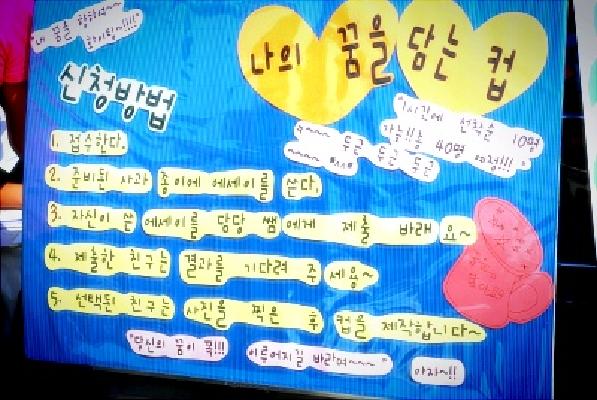 "내 꿈을 향하여~
화이팅~!!!!"
나의 꿈을 담는 컵
신청방법
"1시간에 선착순 10명
하루총 40명 예정!!!"
두근 두근 두근
1. 접수한다.
2. 준비된 사과 종이에 에세이를 쓴다.
3. 자신이 쓴 에세이를 담당 쌤에게 제출 바래요~
4. 제출한 친구는 결과를 기다려 주세용~
5. 선택된 친구는 사진을 찍은 후 컵을 제작합니다~
"당신의 꿈이 꼭!!!
이루어지길 바라며~~~"
아자~!!